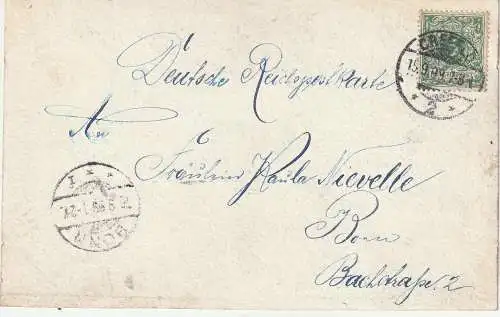 Deutsche Reichspostkarte
An
Fräulein Paula Nievelle
Bonn
Bachstraße 2
BONN